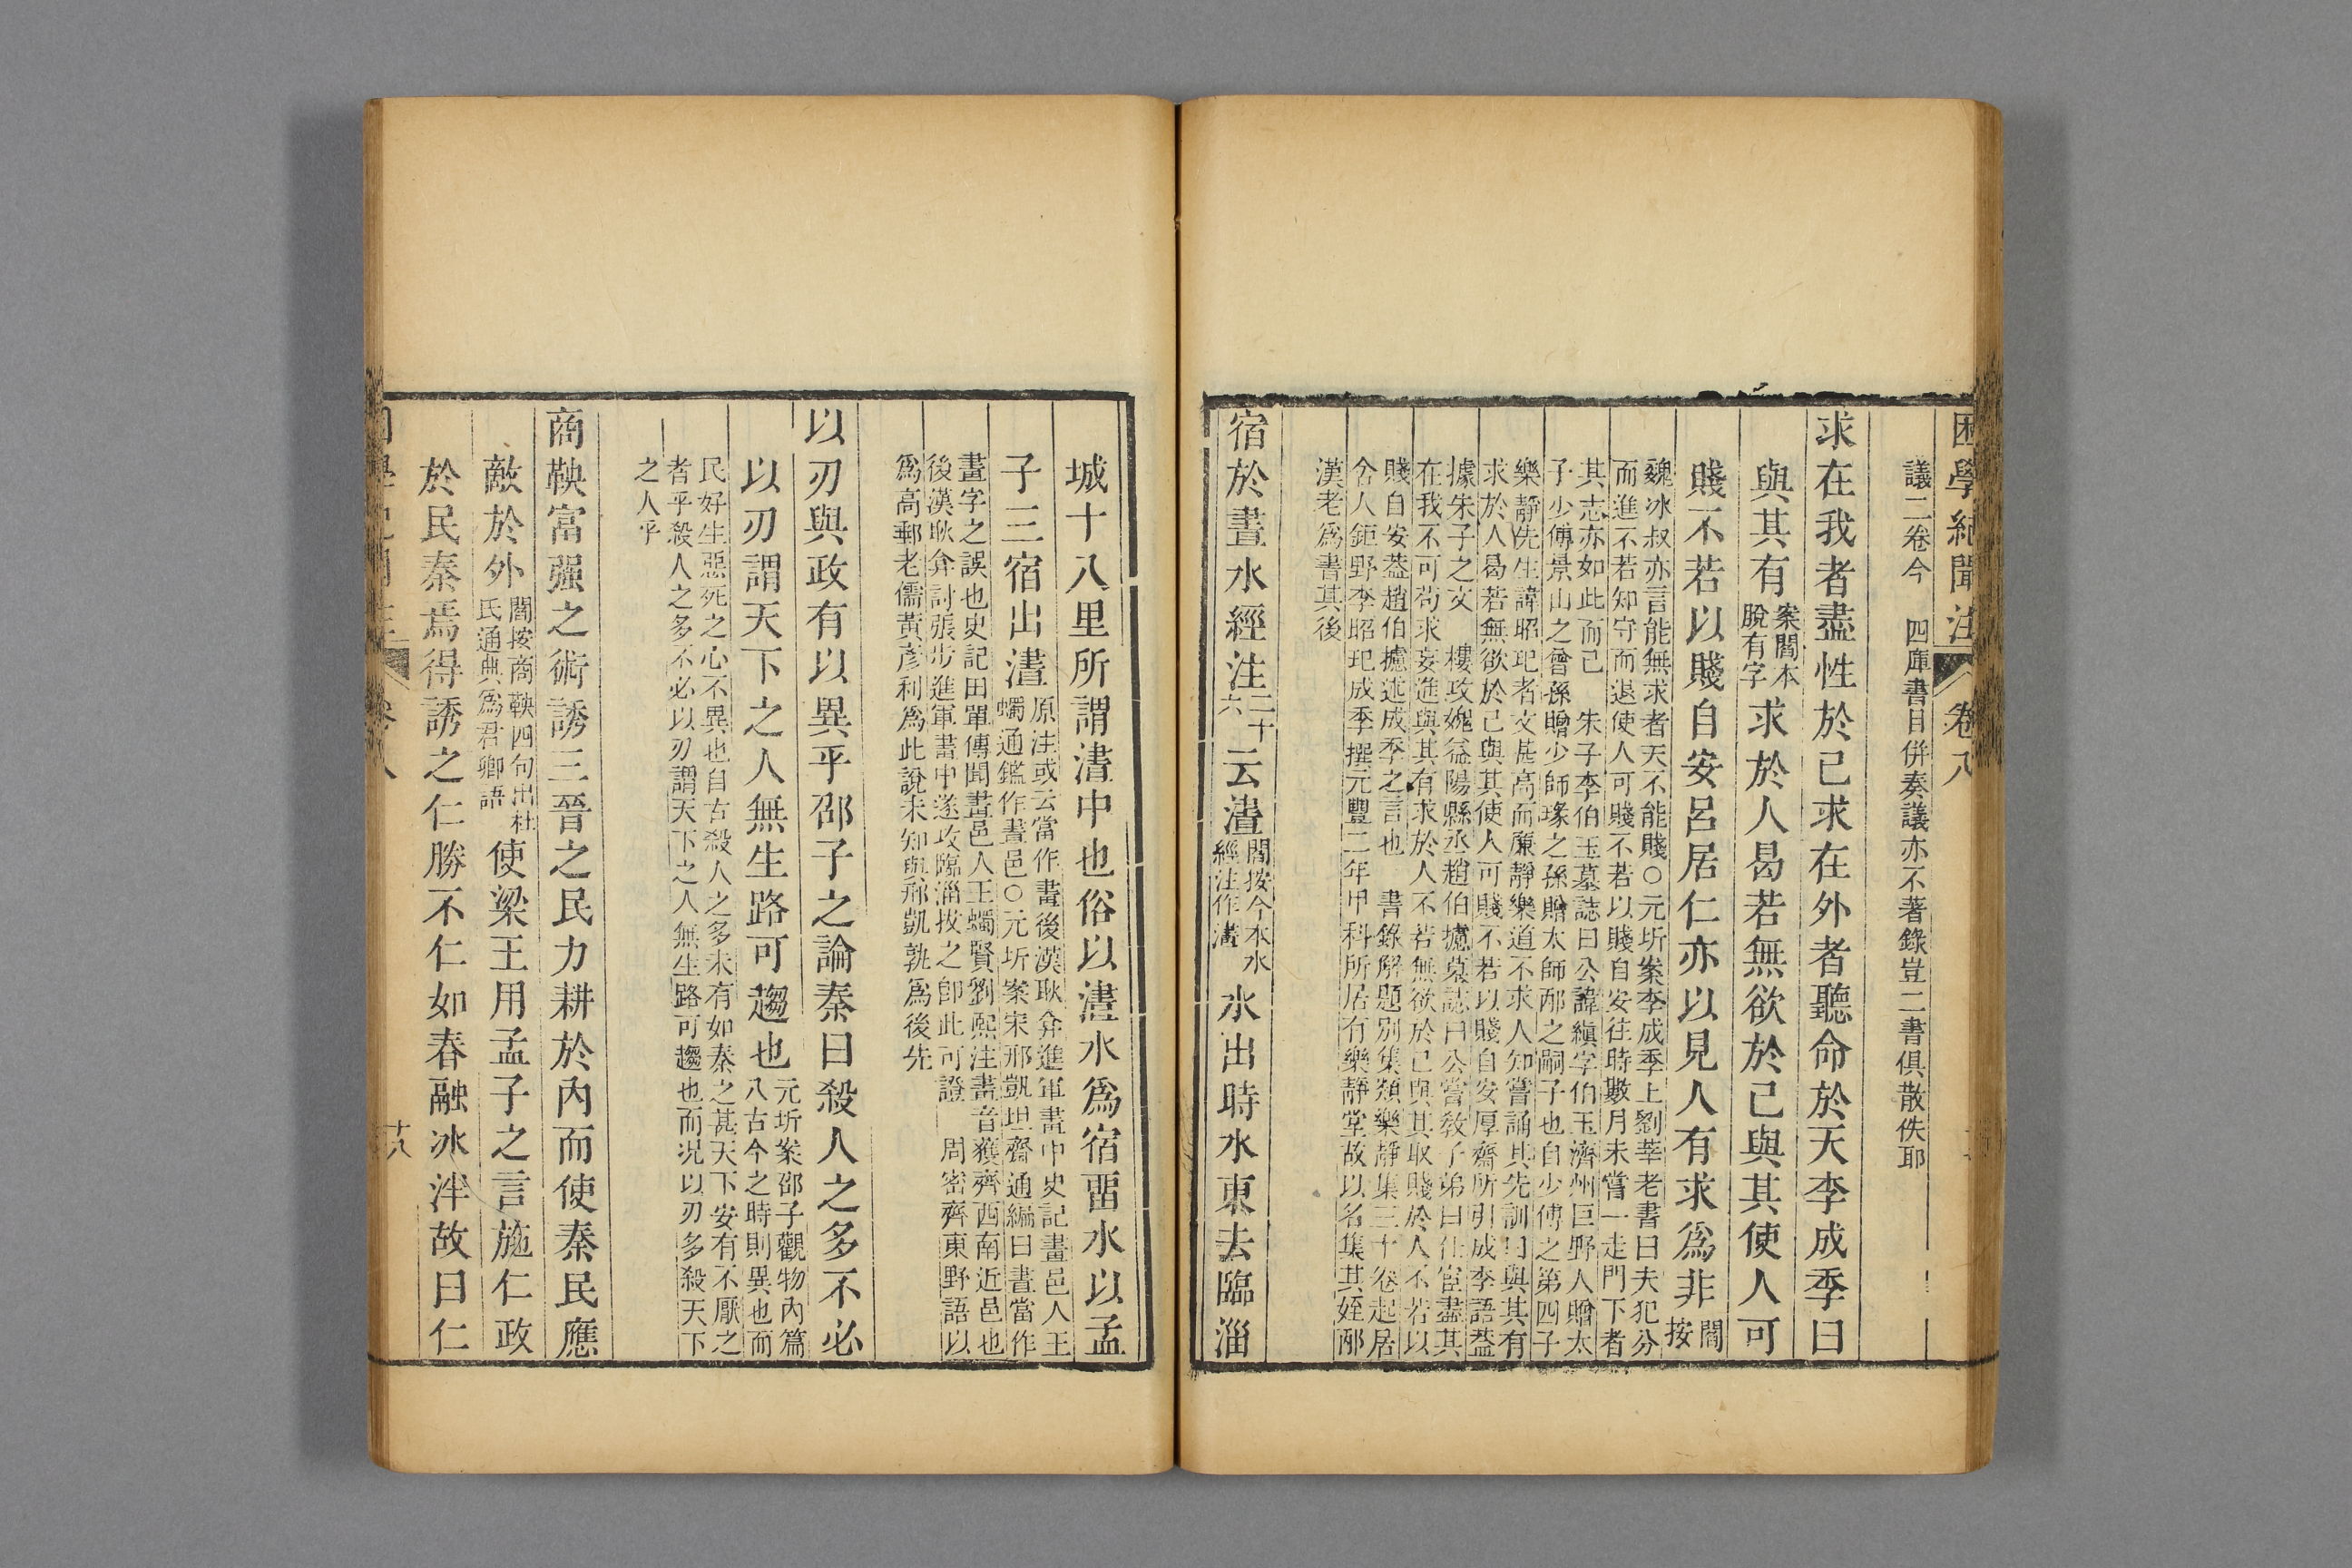 困學紀聞注　卷八
議二卷今　四庫書目併奏議亦不著錄豈二書俱散佚耶
求在我者盡性於己求在外者聽命於天李成季曰
與其有案閻本脫有字求於人曷若無欲於己與其使人可
賤不若以賤自安呂居仁亦以見人有求爲非閻按
魏冰叔亦言能無求者天不能賤○元圻案李成季上劉莘老書曰夫犯分
而進不若知守而退使人可賤不若以賤自安往時數月未嘗一走門下者
其志亦如此而已　朱子李伯玉墓誌曰公諱縝字伯玉濟州巨野人贈太
子少傅景山之曾孫贈少師瑑之孫贈太師邴之嗣子也自少傅之第四子
樂靜先生諱昭玘者文甚高而廉靜樂道不求人知嘗誦其先訓曰與其有
求於人曷若無欲於己與其使人可賤不若以賤自安厚齋所引成季語葢
據朱子之文　樓攻媿益陽縣丞趙伯摅墓誌曰公嘗敎子弟曰仕宦盡其
在我不可茍求妄進與其有求於人不若無欲於己與其取賤於人不若以
賤自安葢趙伯摅述成季之言也　書錄解題別集類樂靜集三十卷起居
舍人鉅野李昭玘成季撰元豐二年甲科所居有樂靜堂故以名集其姪邴
漢老爲書其後
宿於晝水經注二十六云澅閻按今本水經注作澅水出時水東去臨淄
城十八里所謂澅中也俗以澅水爲宿畱水以孟
子三宿出澅原注或云當作畫後漢耿弇進軍畫中史記畫邑人王蠋通鑑作晝邑○元圻案宋邢凱坦齋通編曰晝當作
畫字之誤也史記田單傳聞畫邑人王蠋賢劉熙注畫音獲齊西南近邑也
後漢耿弇討張步進軍畫中遂攻臨淄拔之卽此可證　周密齊東野語以
爲高郵老儒黃彥利爲此說未知與邢凱孰爲後先
以刃與政有以異乎邵子之論秦曰殺人之多不必
以刃謂天下之人無生路可趨也元圻案邵子觀物內篇八古今之時則異也而
民好生惡死之心不異也自古殺人之多未有如秦之甚天下安有不厭之
者乎殺人之多不必以刃謂天下之人無生路可趨也而況以刃多殺天下
之人乎
商鞅富强之術誘三晉之民力耕於內而使秦民應
敵於外閻按商鞅四句出杜氏通典爲君卿語使梁王用孟子之言施仁政
於民秦焉得誘之仁勝不仁如春融冰泮故曰仁
卷八　十八